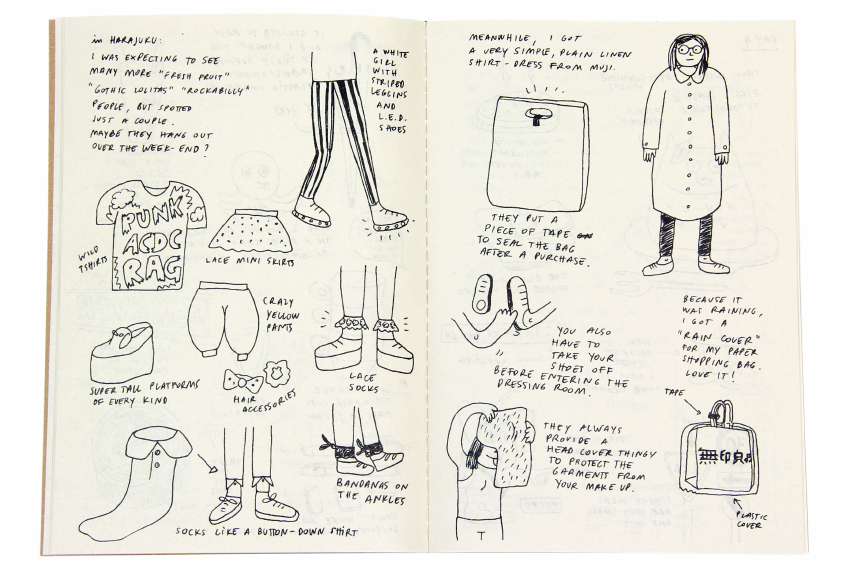 in HARAJUKU:
I WAS EXPECTING TO SEE
MANY MORE "FRESH FRUIT"
"GOTHIC LOLITAS" "ROCKABILLY"
PEOPLE, BUT SPOTTED
JUST A COUPLE.
MAYBE THEY HANG OUT
OVER THE WEEK-END?
A WHITE
GIRL
WITH
STRIPED
LEGGINS
AND
L.E.D.
SHOES
PUNK
ACDC
RAG
WILD
TSHIRTS
LACE MINI SKIRTS
CRAZY
YELLOW
PANTS
SUPER TALL PLATFORMS
OF EVERY KIND
HAIR
ACCESSORIES
LACE
SOCKS
BANDANAS ON
THE ANKLES
SOCKS LIKE A BUTTON-DOWN SHIRT
MEANWHILE, I GOT
A VERY SIMPLE, PLAIN LINEN
SHIRT-DRESS FROM MUJI.
THEY PUT A
PIECE OF TAPE
TO SEAL THE BAG
AFTER A PURCHASE.
YOU ALSO
HAVE TO
TAKE YOUR
SHOES OFF
BEFORE ENTERING THE
DRESSING ROOM.
THEY ALWAYS
PROVIDE A
HEAD COVER THINGY
TO PROTECT THE
GARMENTS FROM
YOUR MAKE UP.
BECAUSE IT
WAS RAINING,
I GOT A
"RAIN COVER"
FOR MY PAPER
SHOPPING BAG.
LOVE IT!
TAPE
無印良
PLASTIC
COVER